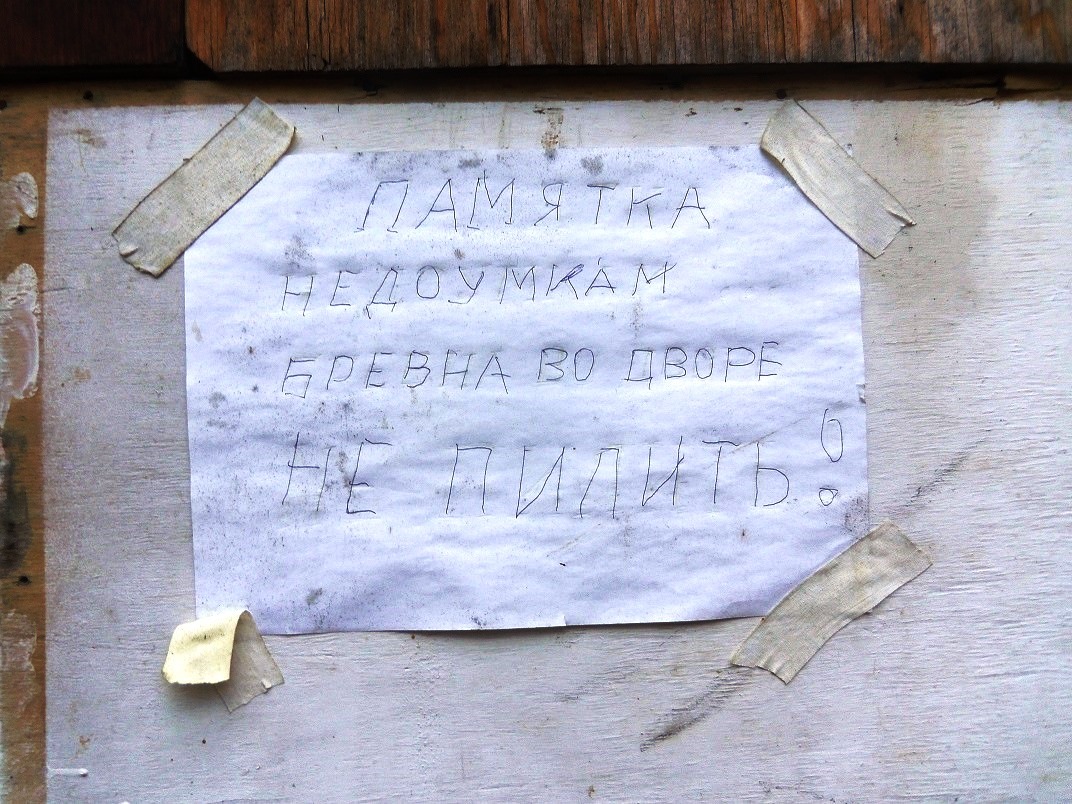 ПАМЯТКА
НЕДОУМКАМ
БРЕВНА ВО ДВОРЕ
НЕ ПИЛИТЬ!